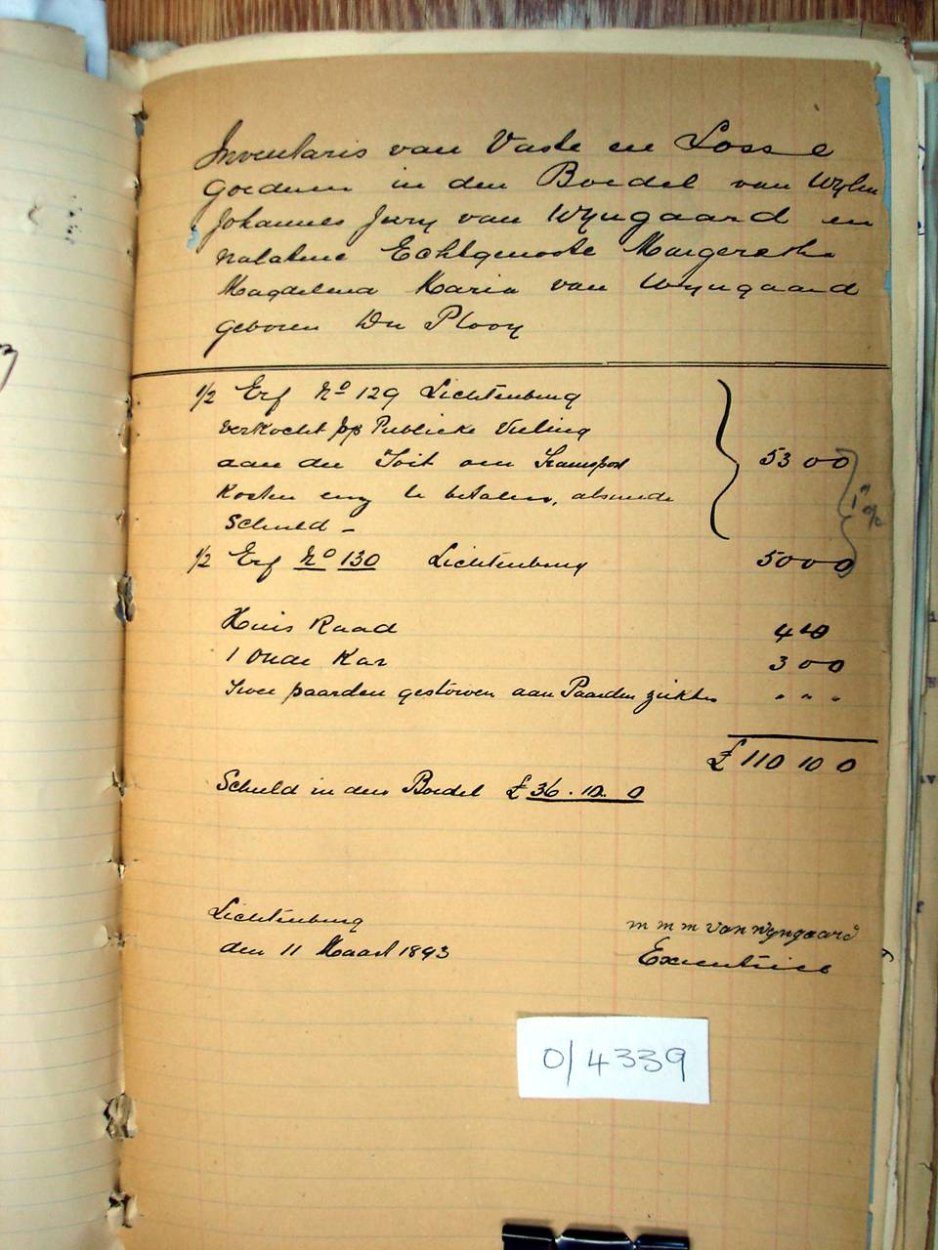 Inventaris van Vaste en Losse
goederen in den Boedel van Wylen
Johannes Jury van Wyngaard en
nalatene Echtgenoote Margeretha
Magdelena Maria van Wyngaard
geboren Du Plooy
1/2 Erf No 129 Lichtenburg
verkocht pp Publieke Vieling
aan du Toit om Transport
Kosten enz te betalen, alsmede
schuld - 53 0 0
1/2 Erf No 130 Lichtenburg 50 0 0
1 %
Huis Raad 4 10
1 Oude Kar 3 0 0
Twee paarden gestorven aan Paarden ziekte " " "
£ 110 10 0
Schuld in den Boedel £ 36 . 10. 0
Lichtenburg
den 11 Maart 1893
m m m van wyngaard
Executrice
0/4339